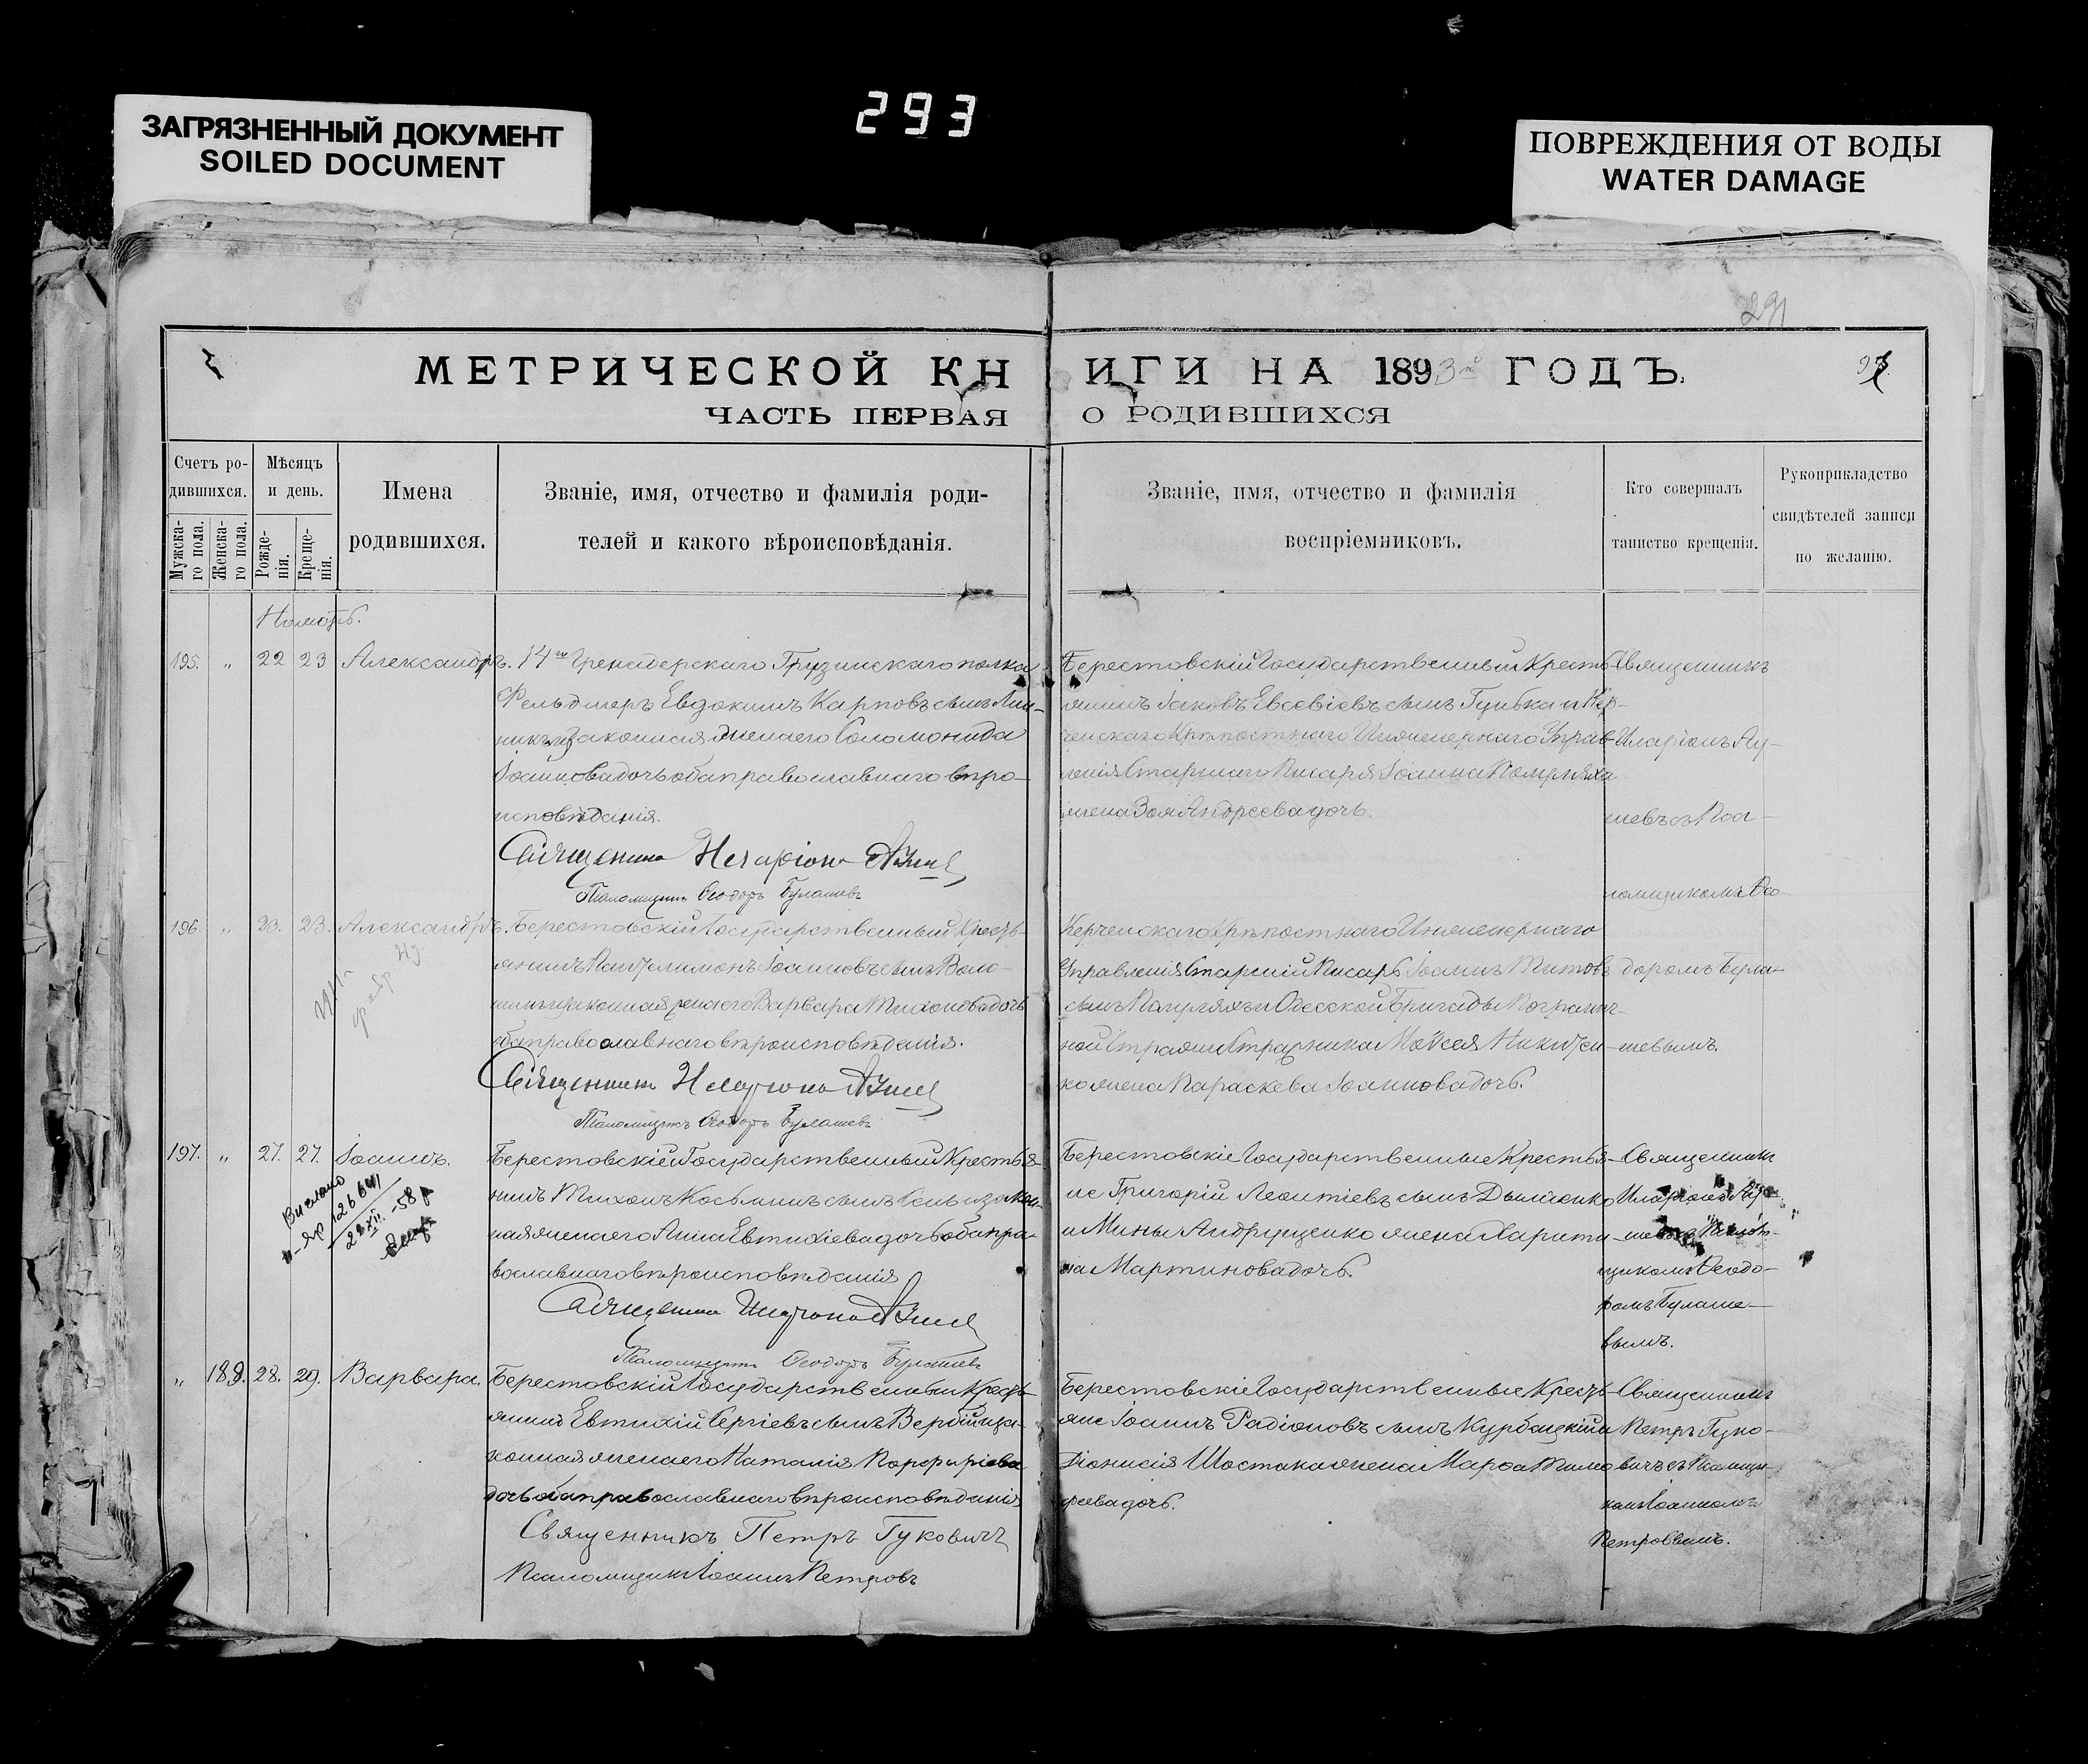 293
ЗАГРЯЗНЕННЫЙ ДОКУМЕНТ
SOILED DOCUMENT
ПОВРЕЖДЕНИЯ ОТ ВОДЫ
WATER DAMAGE
291
МЕТРИЧЕСКОЙ КНИГИ НА 1893 ГОДЪ.
ЧАСТЬ ПЕРВАЯ О РОДИВШИХСЯ
Счетъ ро-
дившихся.
Мужска-
го пола.
Женска-
го пола.
Мѣсяцъ
и день.
Рожде-
нія.
Креще-
нія.
Имена
родившихся.
Званіе, имя, отчество и фамилія роди-
телей и какого вѣроисповѣданія.
Званіе, имя, отчество и фамилія
воспріемниковъ.
Кто совершалъ
таинство крещенія.
Рукоприкладство
свидѣтелей записи
по желанію.
195. „ 22 23 Александръ.
14го Гренадерскаго Грузинскаго полка
Фельдшеръ Евдокимъ Карповъ сынъ
законная жена его Соломонида
Іоаннова дочь оба православнаго вѣро-
исповѣданія.
Священникъ Иларіонъ
Псаломщикъ Ѳеодоръ Булашевъ
Берестовскій Государственный Кресть-
янинъ Іаковъ Евсевіевъ сынъ Губка и Кер-
ченскаго Крѣпостнаго Инженернаго Управ-
ленія Старшаго Писаря Іоанна
жена Зоя Андреева дочь.
Священникъ
Иларіонъ
съ Пса-
ломщикомъ Ѳео-
доромъ Була-
шевымъ.
196. „ 23. 23. Александръ.
Берестовскій Государственный Кресть-
янинъ Пантелимонъ Іоанновъ сынъ Воло-
шинъ и законная жена его Варвара Тихонова дочь
оба православнаго вѣроисповѣданія.
Священникъ Иларіонъ
Псаломщикъ Ѳеодоръ Булашевъ
Керченскаго Крѣпостнаго Инженернаго
Управленія Старшій Писарь Іоаннъ Титовъ
сынъ и Одесской Бригады Погранич-
ной Стражи Стражника Моѵсея Никитен-
ко жена Параскева Іоаннова дочь.
197. „ 27. 27. Іоаннъ.
Выслано
28 XII -58 р
Берестовскій Государственный Крестья-
нинъ Тихонъ Косьминъ сынъ и закон-
ная жена его Анна Евтихіева дочь оба пра-
вославнаго вѣроисповѣданія
Священникъ Иларіонъ
Псаломщикъ Ѳеодоръ Булашевъ
Берестовскіе Государственные Крестья-
не Григорій Леонтіевъ сынъ Дымченко
и Мины Андрущенко жена Харити-
на Мартинова дочь.
Священникъ
Иларіонъ
щикомъ Ѳеодо-
ромъ Булаше-
вымъ.
„ 188. 28. 29. Варвара.
Берестовскій Государственный Кресть-
янинъ Евтихій Сергіевъ сынъ Вербій и за-
конная жена его Наталія Порфиріева
дочь оба православнаго вѣроисповѣданія
Священникъ Петръ Гуковичъ
Псаломщикъ Іоаннъ Петровъ
Берестовскіе Государственные Кресть-
яне Іоаннъ Радіоновъ сынъ Курбацкій и
Діонисія Шостака жена Марѳа Тимо-
феева дочь.
Священникъ
Петръ Гуко-
вичъ съ Псаломщи-
комъ Іоанномъ
Петровымъ.